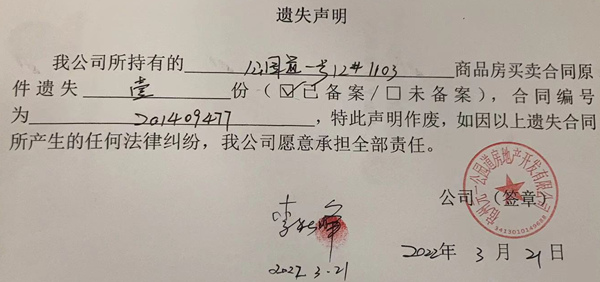 遗失声明
我公司所持有的 公园道一号12#1103 商品房买卖合同原
件遗失 壹 份(☑已备案/□未备案),合同编号
为 201409477 ,特此声明作废,如因以上遗失合同
所产生的任何法律纠纷,我公司愿意承担全部责任。
公司 (签章)
2022年 3 月 21 日
2022.3.21